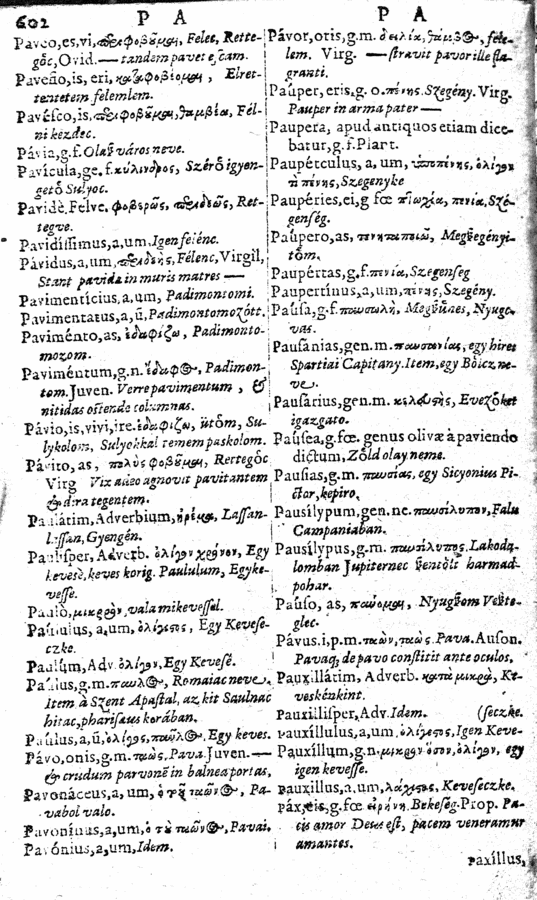 602 P A P A
Paveo, es, vi, περιφοβοῦμαι, Felec, Rette-
gôc, Ovid. — tandem pavet ejcam.
Paveſio, is, eri, Elret-
tentetem felemlem.
Paveſco, is, περιφοβοῦμαι, Fél-
ni kezdec.
Pávia, g.f. Olaſz város neve.
Pavícula, ge. f. κύλινδρος, igyen-
getô Sulyoc.
Pavidè. Felve. φοβερῶς, Ret-
tegve.
Pavidiſſimus, a, um, Igen felénc.
Pávidus, a, um, Félenc, Virgil,
Stant pavida in muris matres —
Pavimentícius, a, um, Padimontomi.
Pavimentatus, a, ũ, Padimontomozótt.
Paviménto, as, ἐδαφίζω, Padimonto-
mozom.
Paviméntum, g.n. ἔδαφος, Padimon-
tom. Juven. Verre pavimentum, &
nitidas oſtende columnas.
Pávio, is, vivi, ire. ἐδαφίζω, ütôm, Su-
lykolom, Sulyokkal temem paskolom.
Pávito, as, πολὺς φοβοῦμαι, Rettegôc
Virg Vix agnovit pavitantem
& dira tegentem.
Paullátim, Adverbium, ἠρέμα, Laſſan-
laſſan, Gyengén.
Paulíſper, Adverb. ὀλίγον χρόνον, Egy
keveſé, keves korig. Paululum, Egyke-
veſſe.
Paulò, μικρὸν, vala mikeveſſel.
Páululus, a, um, ὀλίγιστος, Egy Keveſe-
czke.
Paulúm, Adv. ὀλίγον, Egy Keveſé.
Paulus, g.m. παῦλος, Romaiac neve.
Item à Szent Apaſtal, az kit Saulnac
hitac, phariſæus korában.
Paulus, a, ũ, ὀλίγος, παῦρος, Egy keves.
Pávo, onis, g.m. ταὼς, Pava. Juven. —
& crudum pavonẽ in balnea portas,
Pavonáceus, a, um, Pa-
vabol valo.
Pavonínus, a, um, Pavai.
Pavónius, a, um, Idem.
Pávor, oris, g.m. δειλία, féle-
lem. Virg. — ſtravit pavor ille fla-
granti.
Pauper, eris, g. o. πένης, Szegény. Virg.
Pauper in arma pater —
Paupera, apud antiquos etiam dice-
batur, g.f. Plaut.
Paupérculus, a, um, ὑποπένης, ὀλίγον
τι πένης, Szegenyke
Paupéries, ei, g fœ πτωχία, πενία, Szé-
genſég.
Paúpero, as, Megſzegényi-
tôm.
Paupértas, g.f. πενία, Szegenſeg
Paupertínus, a, um, πένης, Szegény.
Pauſa, g.f. παυσωλὴ, Megſzünes, Nyugo-
vas.
Pauſánias, gen. m. παυσανίας, egy hires
Spartiai Capitany. Item, egy Bôlcz ne-
ve.
Pauſárius, gen. m. κελευστὴς, Evezôket
igazgato.
Pauſea, g.fœ. genus olivæ à paviendo
dictum, Zôld olay neme.
Pauſias, g.m. παυσίας, egy Sicyonius Pi-
ctor, kepiro.
Pauſílypum, gen. ne. παυσίλυπον, Falu
Campaniaban.
Pauſílypus, g.m. παυσίλυπος, Lakoda-
lomban Jupiternec ſzentôlt harmad-
pohar.
Pauſo, as, παύομαι, Nyugſzom Veſzte-
glec.
Pávus, i, p.m. ταὼν, ταὼς. Pava. Auſon.
Pavaq́; de pavo conſtitit ante oculos.
Pauxillátim, Adverb. κατὰ μικρὰ, Ke-
veskénkint.
Pauxillíſper, Adv. Idem. (ſeczke.
Pauxíllulus, a, um, ὀλίγιστος, Igen Keve-
Pauxíllum, g.n. μικρὸν ὅσον, ὀλίγον, egy
igen keveſſe.
pauxillus, a, um, Keveſeczke.
páx, cis, g.fœ εἰρήνη. Bekeſég. Prop. Pa-
cis amor Deus eſt, pacem veneramur
amantes.
paxíllus,